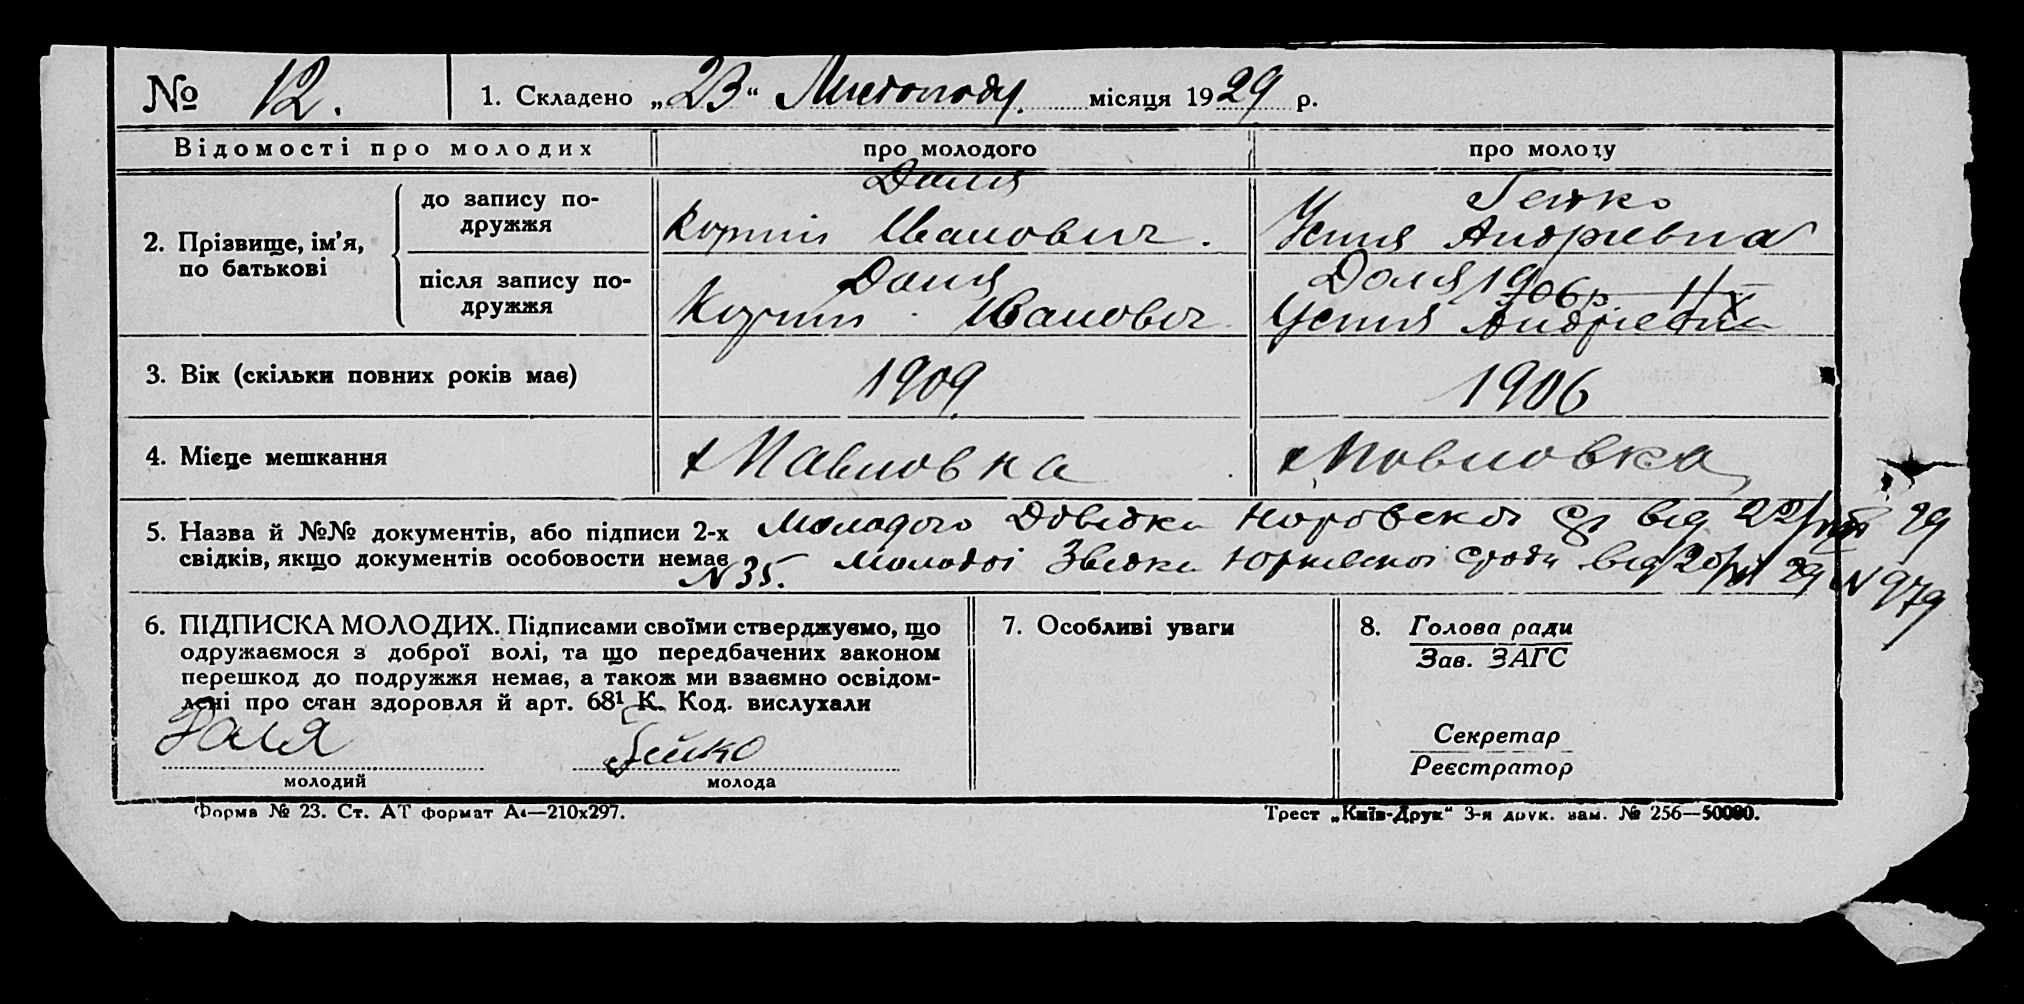 № 12. 1. Складено „23“ Листопаду місяця 1929 р.
Відомості про молодих про молодого про молоду
2. Прізвище, ім’я, по батькові
до запису по-
дружжя
Доля
Корній Іванович.
Гейко
Устия Андріевна
після запису по-
дружжя
Доля
Корній Іванович
Доля 1906 р.
Устия Андріевна
3. Вік (скільки повних років має) 1909 1906
4. Місце мешкання х Павловка х Повловка
5. Назва й №№ документів, або підписи 2-х Молодого Довідка с/р від 22/ 29
свідків, якщо документів особовости немає № 35. Молодої сроди від 20/ 29 № 979
6. ПІДПИСКА МОЛОДИХ. Підписами своїми стверджуємо, що
одружаємося з доброї волі, та що передбачених законом
перешкод до подружжя немає, а також ми взаємно освідом-
лені про стан здоровля й арт. 68¹ К. Код. вислухали
Доля Гейко
молодий молода
7. Особливі уваги
8. Голова ради
Зав. ЗАГС
Секретар
Реєстратор
Форма № 23. Ст. АТ формат А4—210х297. Трест „Київ-Друк“ 3-я друк. зам. № 256—50000.